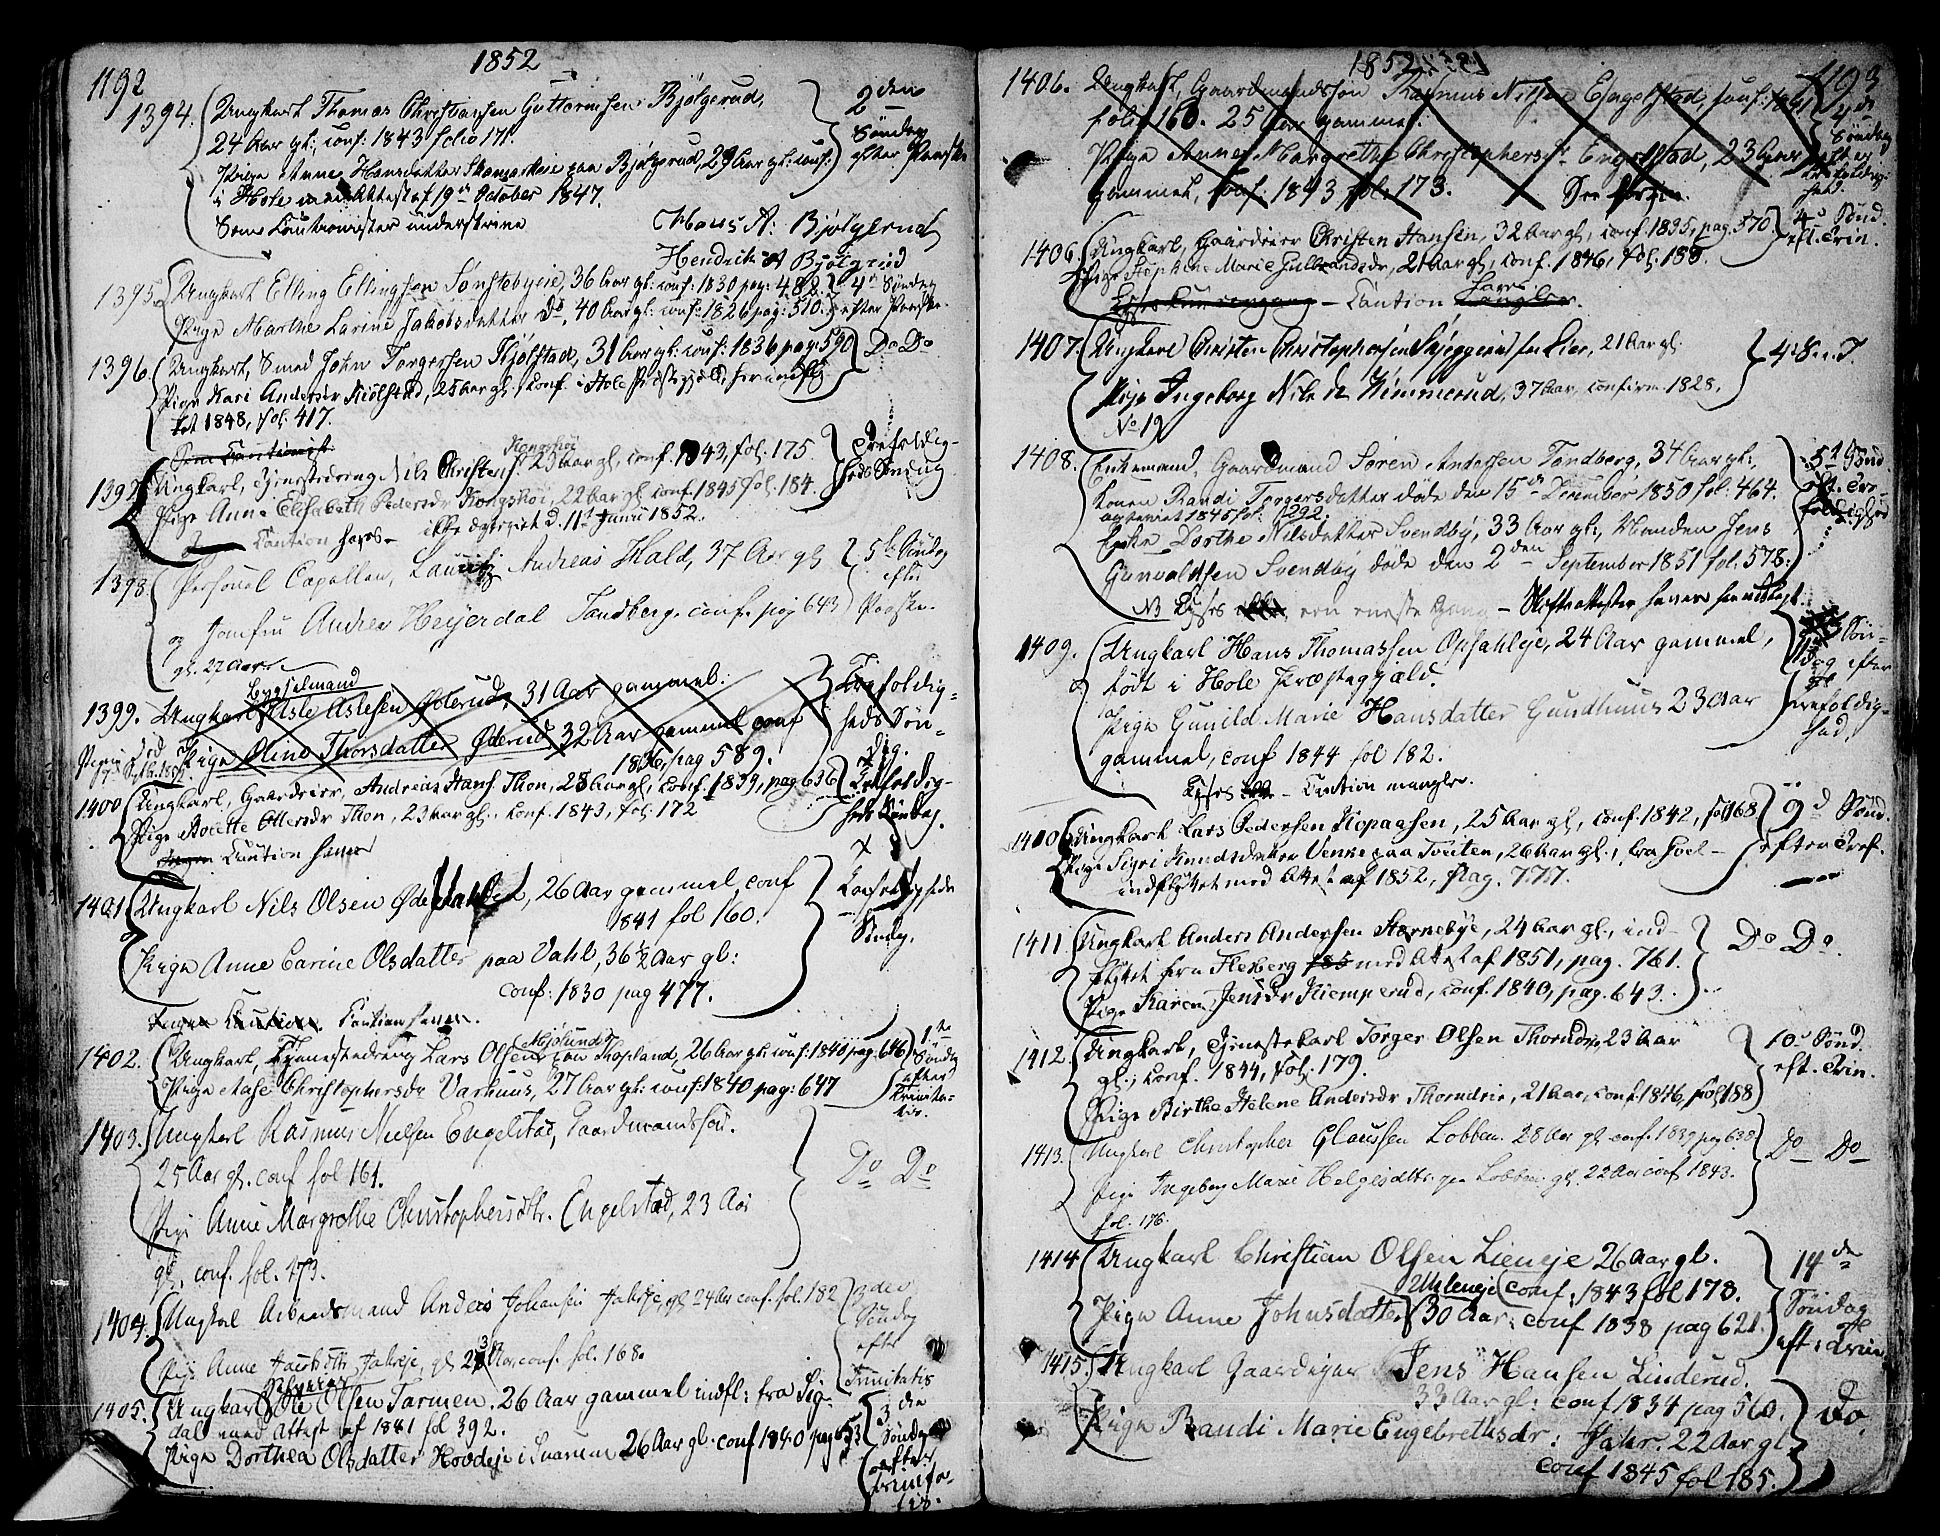 1192
1852
1394. Ungkarl Thomas Christiansen Guttormsen Bjølgerud,
24 Aar gl:, conf: 1843 folio 171.
Pige Anne Hansdatter paa Bjølgerud, 29 Aar gl: conf:
i Hole Attest af 19de October 1847.
Som Cautionister underskrive
Hans A: Bjølgerud
Hendrik A Bjølgerud
2den
Søndag
efter Paaske
1395. Ungkarl Elling Ellingsen Sønstebyeie, 36 Aar gl: conf: 1830 pag: 488.
Pige Marthe Larine Jakobsdatter Do, 40 Aar gl: conf: 1826 pag: 510.
4de Søndag
efter Paaske
1396. Ungkarl, Smed John Torgersen Kjølstad, 31 Aar gl: conf: 1836 pag: 590
Pige Kari Andersdr Kiølstad, 25 Aar gl., conf. i Hole Præstegjæld,
1848, fol. 417.
Do Do
Som Cautionist
1397. Ungkarl, Tjenestedreng Nils Christens. Kongshøi 23 Aar gl, conf. 1843, fol. 175.
Pige Anne Elisabeth Pedersdr Kongshøi, 22 Aar gl conf. 1845 fol. 184.
Caution haves – ikke ægteviet d. 11te Junii 1852.
Trefoldig-
heds Søndag
1398. Personel Capellan, Lauritz Andreas Hald, 37 Aar gl
og Jomfru Andrea Heyerdal Sandberg. conf. pag 643
gl. 27 Aar
5te Søndag
efter
Paaske.
1399. Bygselmand
Ungkarl Asle Aslesen Øderud, 31 Aar gammel:
Pige Oline Thorsdatter Øderud 32 Aar gammel conf
1836, pag 589.
Trefoldig-
heds Søn-
dag.
1400 Ungkarl, Gaardeier, Andreas Hans. Thon, 28 Aar gl, conf. 1839, pag 636
Pige Rosette Ottersdr Thon, 23 Aar gl., conf. 1843, fol. 172
Ingen Caution haves
Trefoldig-
heds Søndag.
1401 Ungkarl Nils Olsen 26 Aar gammel conf
1841 fol 160.
Pige Anne Carine Olsdatter paa Vahl, 36 ½ Aar gl:
conf: 1830 pag 477.
Ingen Caution. Caution haves.
1402. Ungkarl, Tjenestedreng Lars Olsen Mjølund paa Hopland, 26 Aar gl: conf: 1840 pag: 646
Pige Aase Christophersdr Varhuus, 27 Aar gl: conf: 1840 pag: 647
1ste
Søndag
efter
Trinita-
tis.
1403. Ungkarl Rasmus Nielsen Engelstad, Gaardmandssøn.
25 Aar gl. conf fol 161.
Pige Anne Margrethe Christophersdtr. Engelstad, 23 Aar
gl, conf. fol. 173.
Do Do
1404. Ungkal Arbeidsmand Anders Johansen Jahreje, gl 24 Aar conf. fol. 182
Pige Anne Jacobsdtr Jahreje, gl 23 Aar, conf. fol. 168.
3die
Søndag
efter
Trinitatis
1405. Ungkarl Ole Olsen Tarmen. 26 Aar gammel indfl: fra Sig-
dal med Attest af 1841 fol 392.
Pige Dorthea Olsdatter Hovdeje i Snarum 26 Aar gl. conf 1840 pag 653
3die
Søndag
efter
Trinita-
tis.
1193
1852
1406. Ungkarl, Gaardmandssøn Rasmus Nilsen Engelstad, conf: 1841
folio 160. 25 Aar gammel.
Pige Anne Margrethe Christophersdr Engelstad, 23 Aar
gammel, conf. 1843 fol. 173.
4de
Søndag
efter
Trefoldig-
hed.
1406. Ungkarl, Gaardeier Christen Hansen, 32 Aar gl, conf. 1835, pag. 570
Pige Sophie Marie Gulbrandsdr, 21 Aar gl, conf. 1846, fol. 188.
Caution haves
4de Sønd.
eft. Trin.
1407. Ungkarl Christen Christophersen Skjeggerud, 21 Aar gl.
Pige Ingeborg Nils Dr Himmerud, 37 Aar, confirm. 1828,
No 19
4de S. e. T.
1408. Enkemand, Gaardmand Søren Andersen Tandberg, 34 Aar gl.,
Konen Randi Torgersdatter døde den 15de December 1850 fol. 464.
1845 fol. 1292.
Enke Dorthe Nilsdatter Svendby, 33 Aar gl., Manden Jens
Gunvaldsen Svendby døde den 2den September 1851 fol. 578.
NB Lyses een eneste Gang – Skifteattester haves
5te Sønd
eft. Tre-
foldighed
1409. Ungkarl Hans Thomassen Opsahleje, 24 Aar gammel,
født i Hole Præstegjæld.
Pige Gunild Marie Hansdatter Gundhuus 23 Aar
gammel, conf 1844 fol 182.
Lyses – Caution mangler.
Søn-
dag efter
Trefoldig-
hed,
1410 Ungkarl Lars Pedersen Kopaasen, 25 Aar gl, conf. 1842, fol 168
Pige Sigri Knudsdatter Venke paa Tveiten, 26 Aar gl., fra Hoel –
indflyttet med Attest af 1852, pag. 777.
9de Sønd.
efter Tref.
1411. Ungkarl Anders Andersen Stærnebye, 24 Aar gl., ind-
flyttet fra Flesberg med Attest af 1851, pag. 761.
Pige Karen Jensdr Kiemperud, conf. 1840, pag. 643.
Do Do.
1412. Ungkarl, Tjenestekarl Torger Olsen Thorud, 23 Aar
gl., conf. 1844, fol. 179.
Pige Birthe Helene Andersdr Thorudeie, 21 Aar, conf. 1846, fol 188
10de Sønd.
eft. Trin.
1413. Ungkal Christopher Glaussen Lobben 28 Aar gl conf. 1839 pag 638
Pige Ingeborg Marie Helgesdtr. paa Lobben gl. 22 Aar conf 1843.
fol. 176.
Do Do
1414 Ungkarl Christian Olsen Lieneje 26 Aar gl.
conf: 1843 fol 178.
Pige Anne Johnsdatter Uhleneje 30 Aar: conf 1838 pag 621
14de
Søndag
eft: Trin.
1415. Ungkarl Gaardejer Jens Hansen Linderud.
33 Aar gl: conf 1834 pag 560.
Pige Randi Marie Engebrethsdr: Jahr. 22 Aar gl
conf 1845 fol 185.
Do.